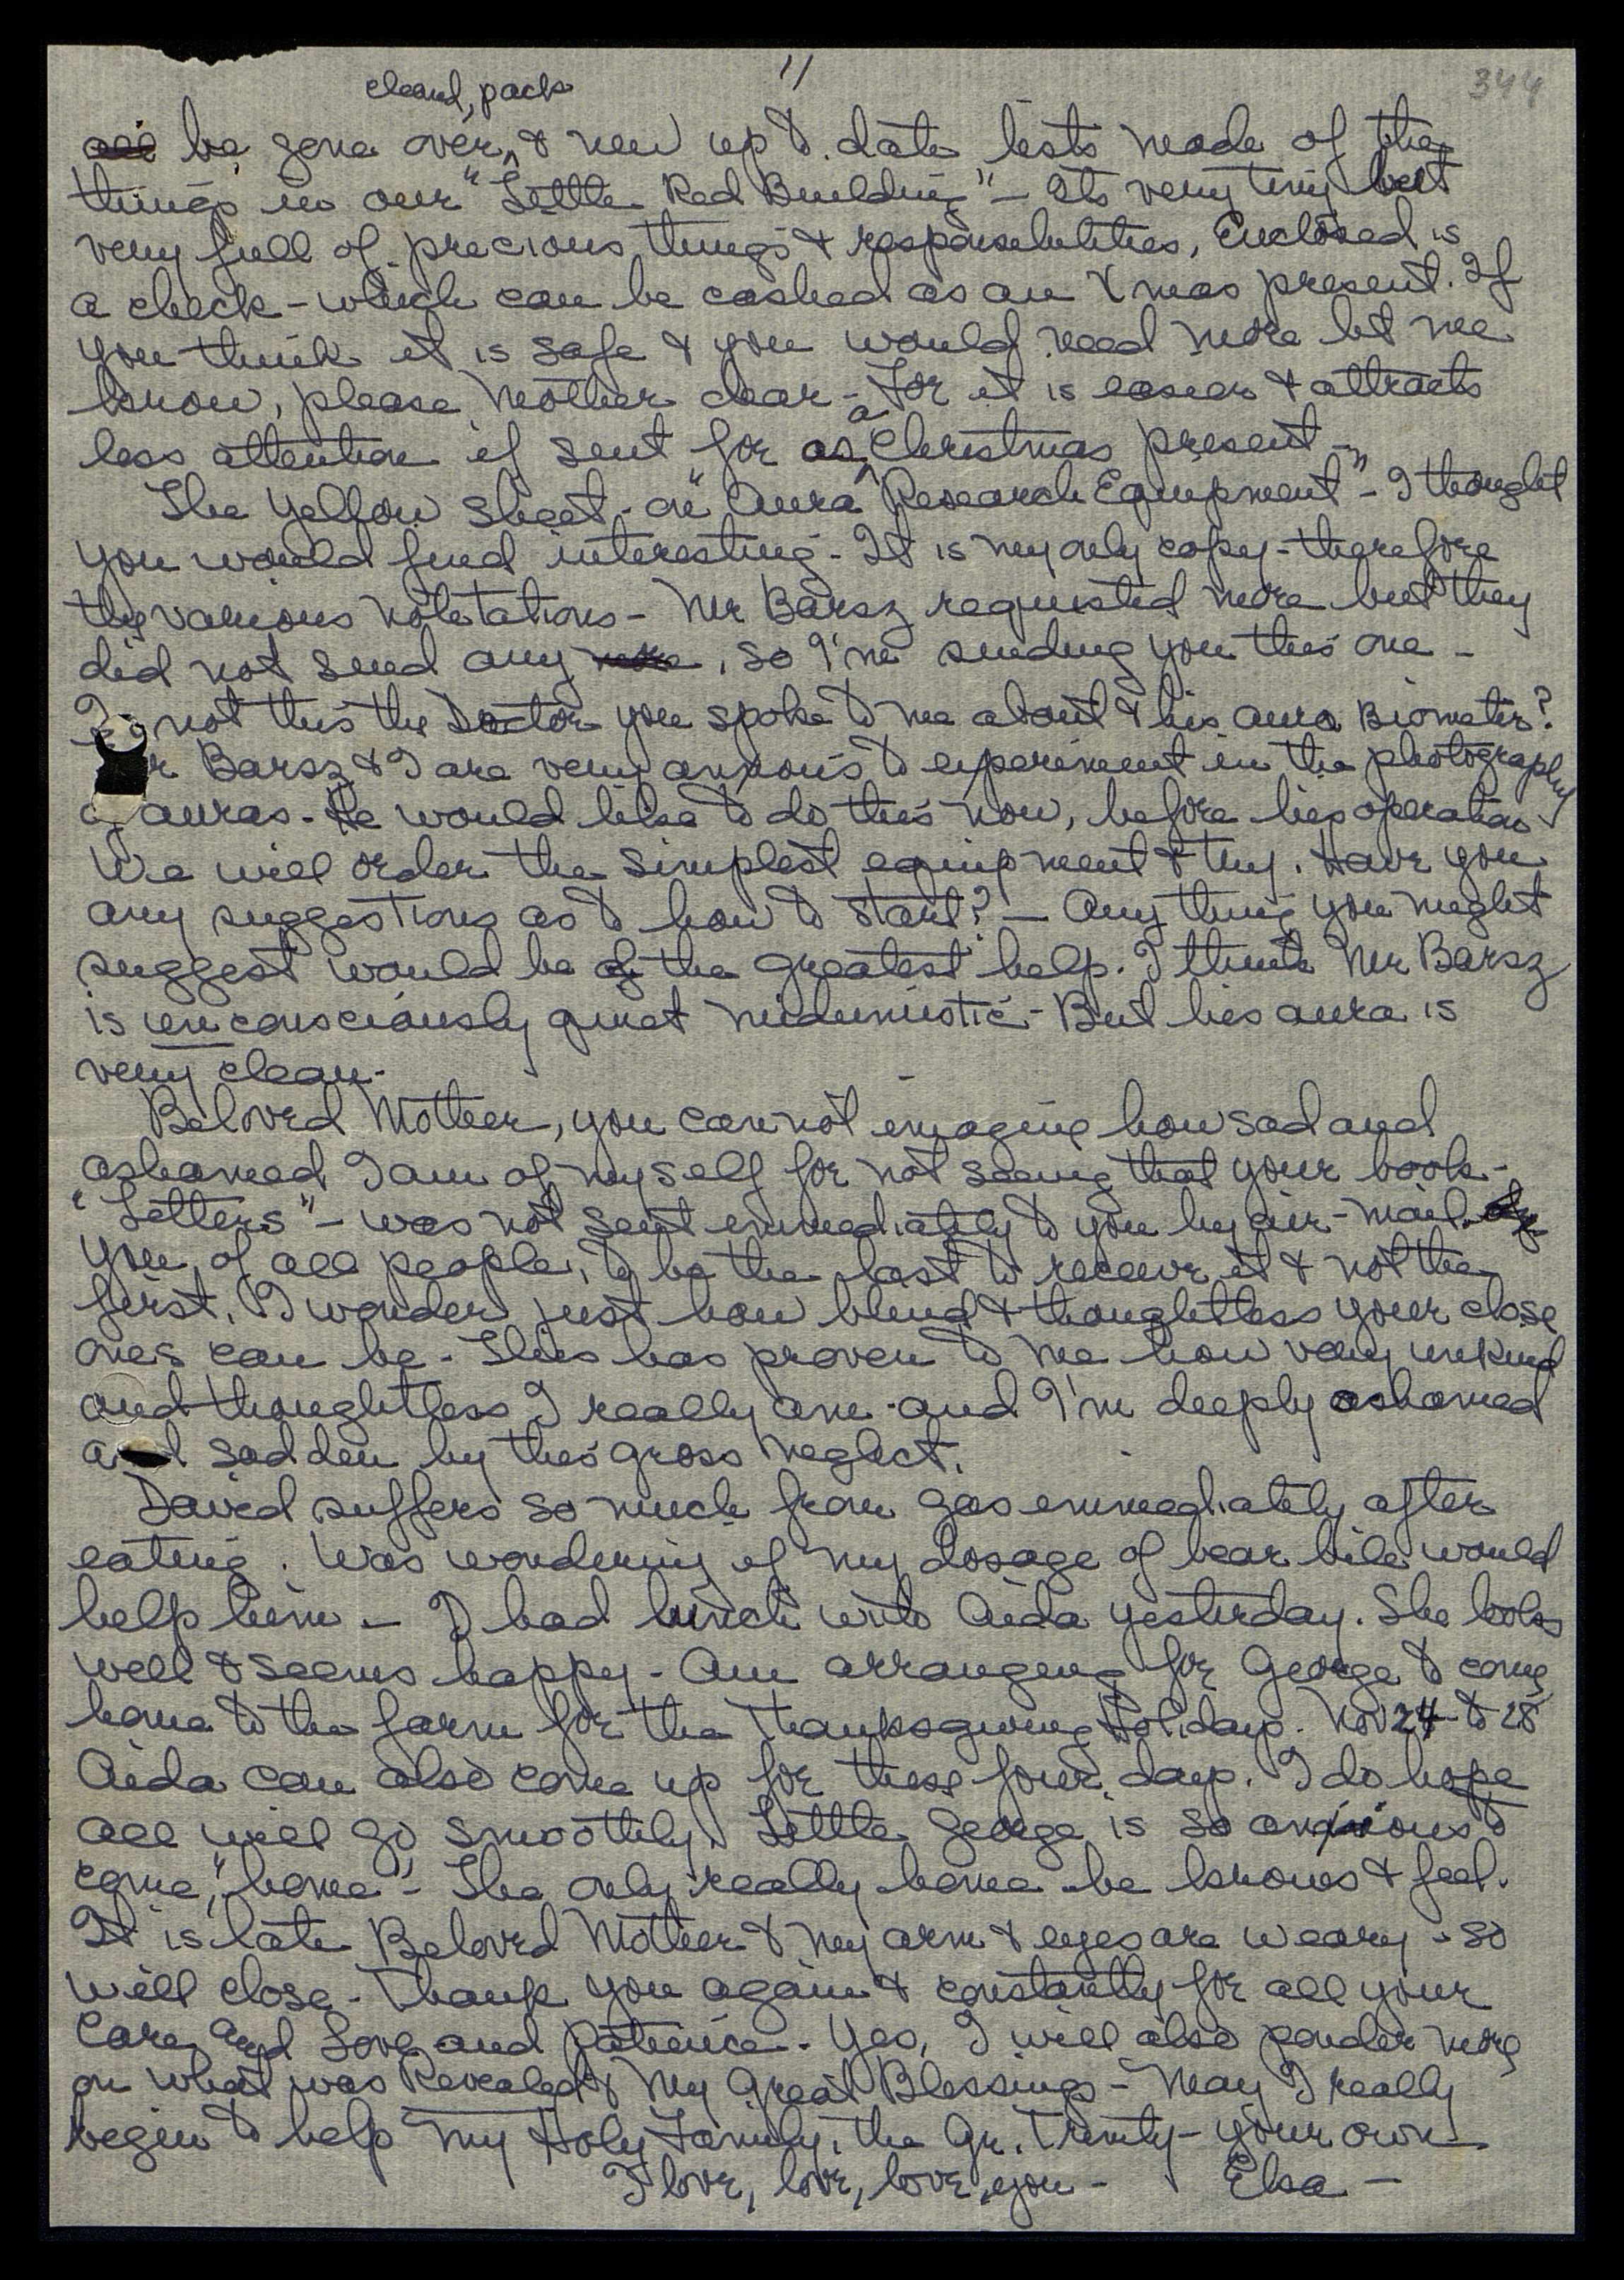 11
344
cleaned, pack
all be gone over, & new up to date lists made of the
things in our "Little Red Building" - Its very tiny but
very full of precious things & responsibilities, Enclosed is
a check - which can be cashed as an Xmas present. If
you think it is safe & you would need more let me
know, please, Mother dear - For it is easier & attracts
less attention if sent for as a Christmas present -
The yellow sheet - on "Aura Research Equipment" - I thought
you would find interesting - It is my only copy - therefore
the various notetations - Mr Barsz requested more but they
did not send any more, so I'm sending you this one -
Is not this the Doctor you spoke to me about & his aura Biometer?
r Barsz & I are very anxious to experiment in the photography
of auras - He would like to do this now, before his operation
We will order the simplest equipment & try. Have you
any suggestions as to how to start? - Any thing you might
suggest would be of the greatest help. I think Mr Barsz
is unconsciously quiet midumistic - But his aura is
very clean -
Beloved Mother, you can not imagine how sad and
ashamed I am of myself for not seeing that your book -
"Letters" - was not sent immediately to you by air-mail.
you, of all people, to be the last to receive it & not the
first. I wonder just how blind & thoughtless your close
ones can be - This has proven to me how very unkind
and thoughtless I really am - and I'm deeply ashamed
and sadden by this gross neglect.
David suffers so much from gas immediately after
eating. Was wondering if my dosage of bear bile would
help him - I had lunch with Aida yesterday. She looks
well & seems happy - Am arranging for George to come
home to the farm for the Thanksgiving Holidays. Nov 24 to 28
Aida can also come up for these four days. I do hope
all will go smoothly. Little George is so anxious to
come, "home" - The only really home he knows & feel.
It is late Beloved Mother & my arm & eyes are weary - so
will close - Thank you again & constantly for all your
Care, and Love and Patience - Yes, I will also ponder more
on what was Revealed & My Great Blessings - May I really
begin to help my Holy Family, the Gr. Trinity - your own
I love, love, love, you - Elsa -